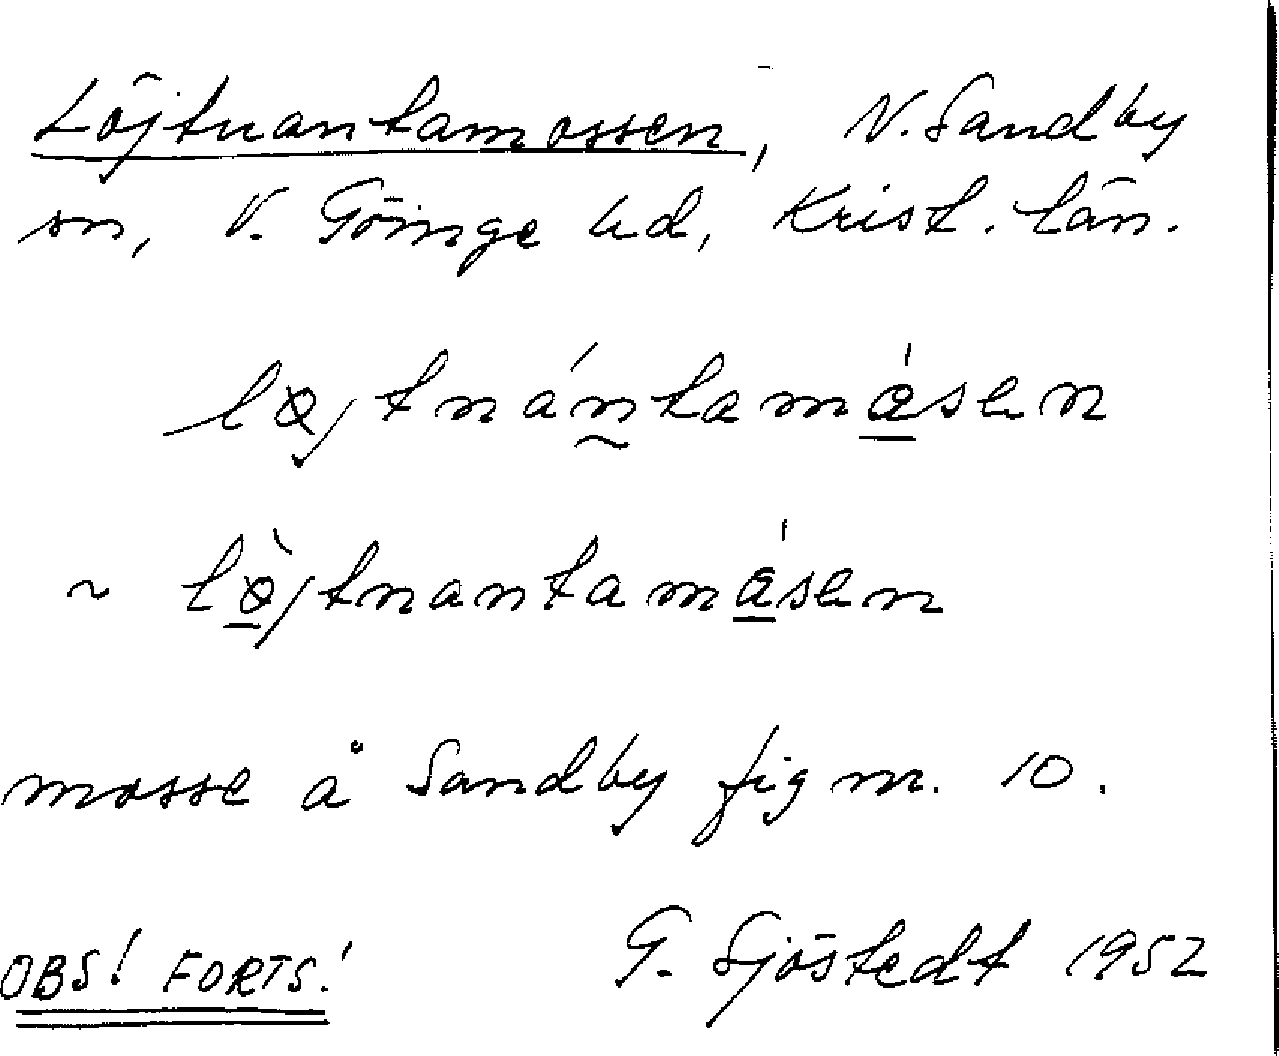 Löjtnantamossen, N. Sandby
sn, V. Göinge hd, Krist. län.
løjtnántamåsen
~ løjtnantamåsen
mosse å Sandby fig m. 10.
G. Sjöstedt 1952
OBS! FORTS!